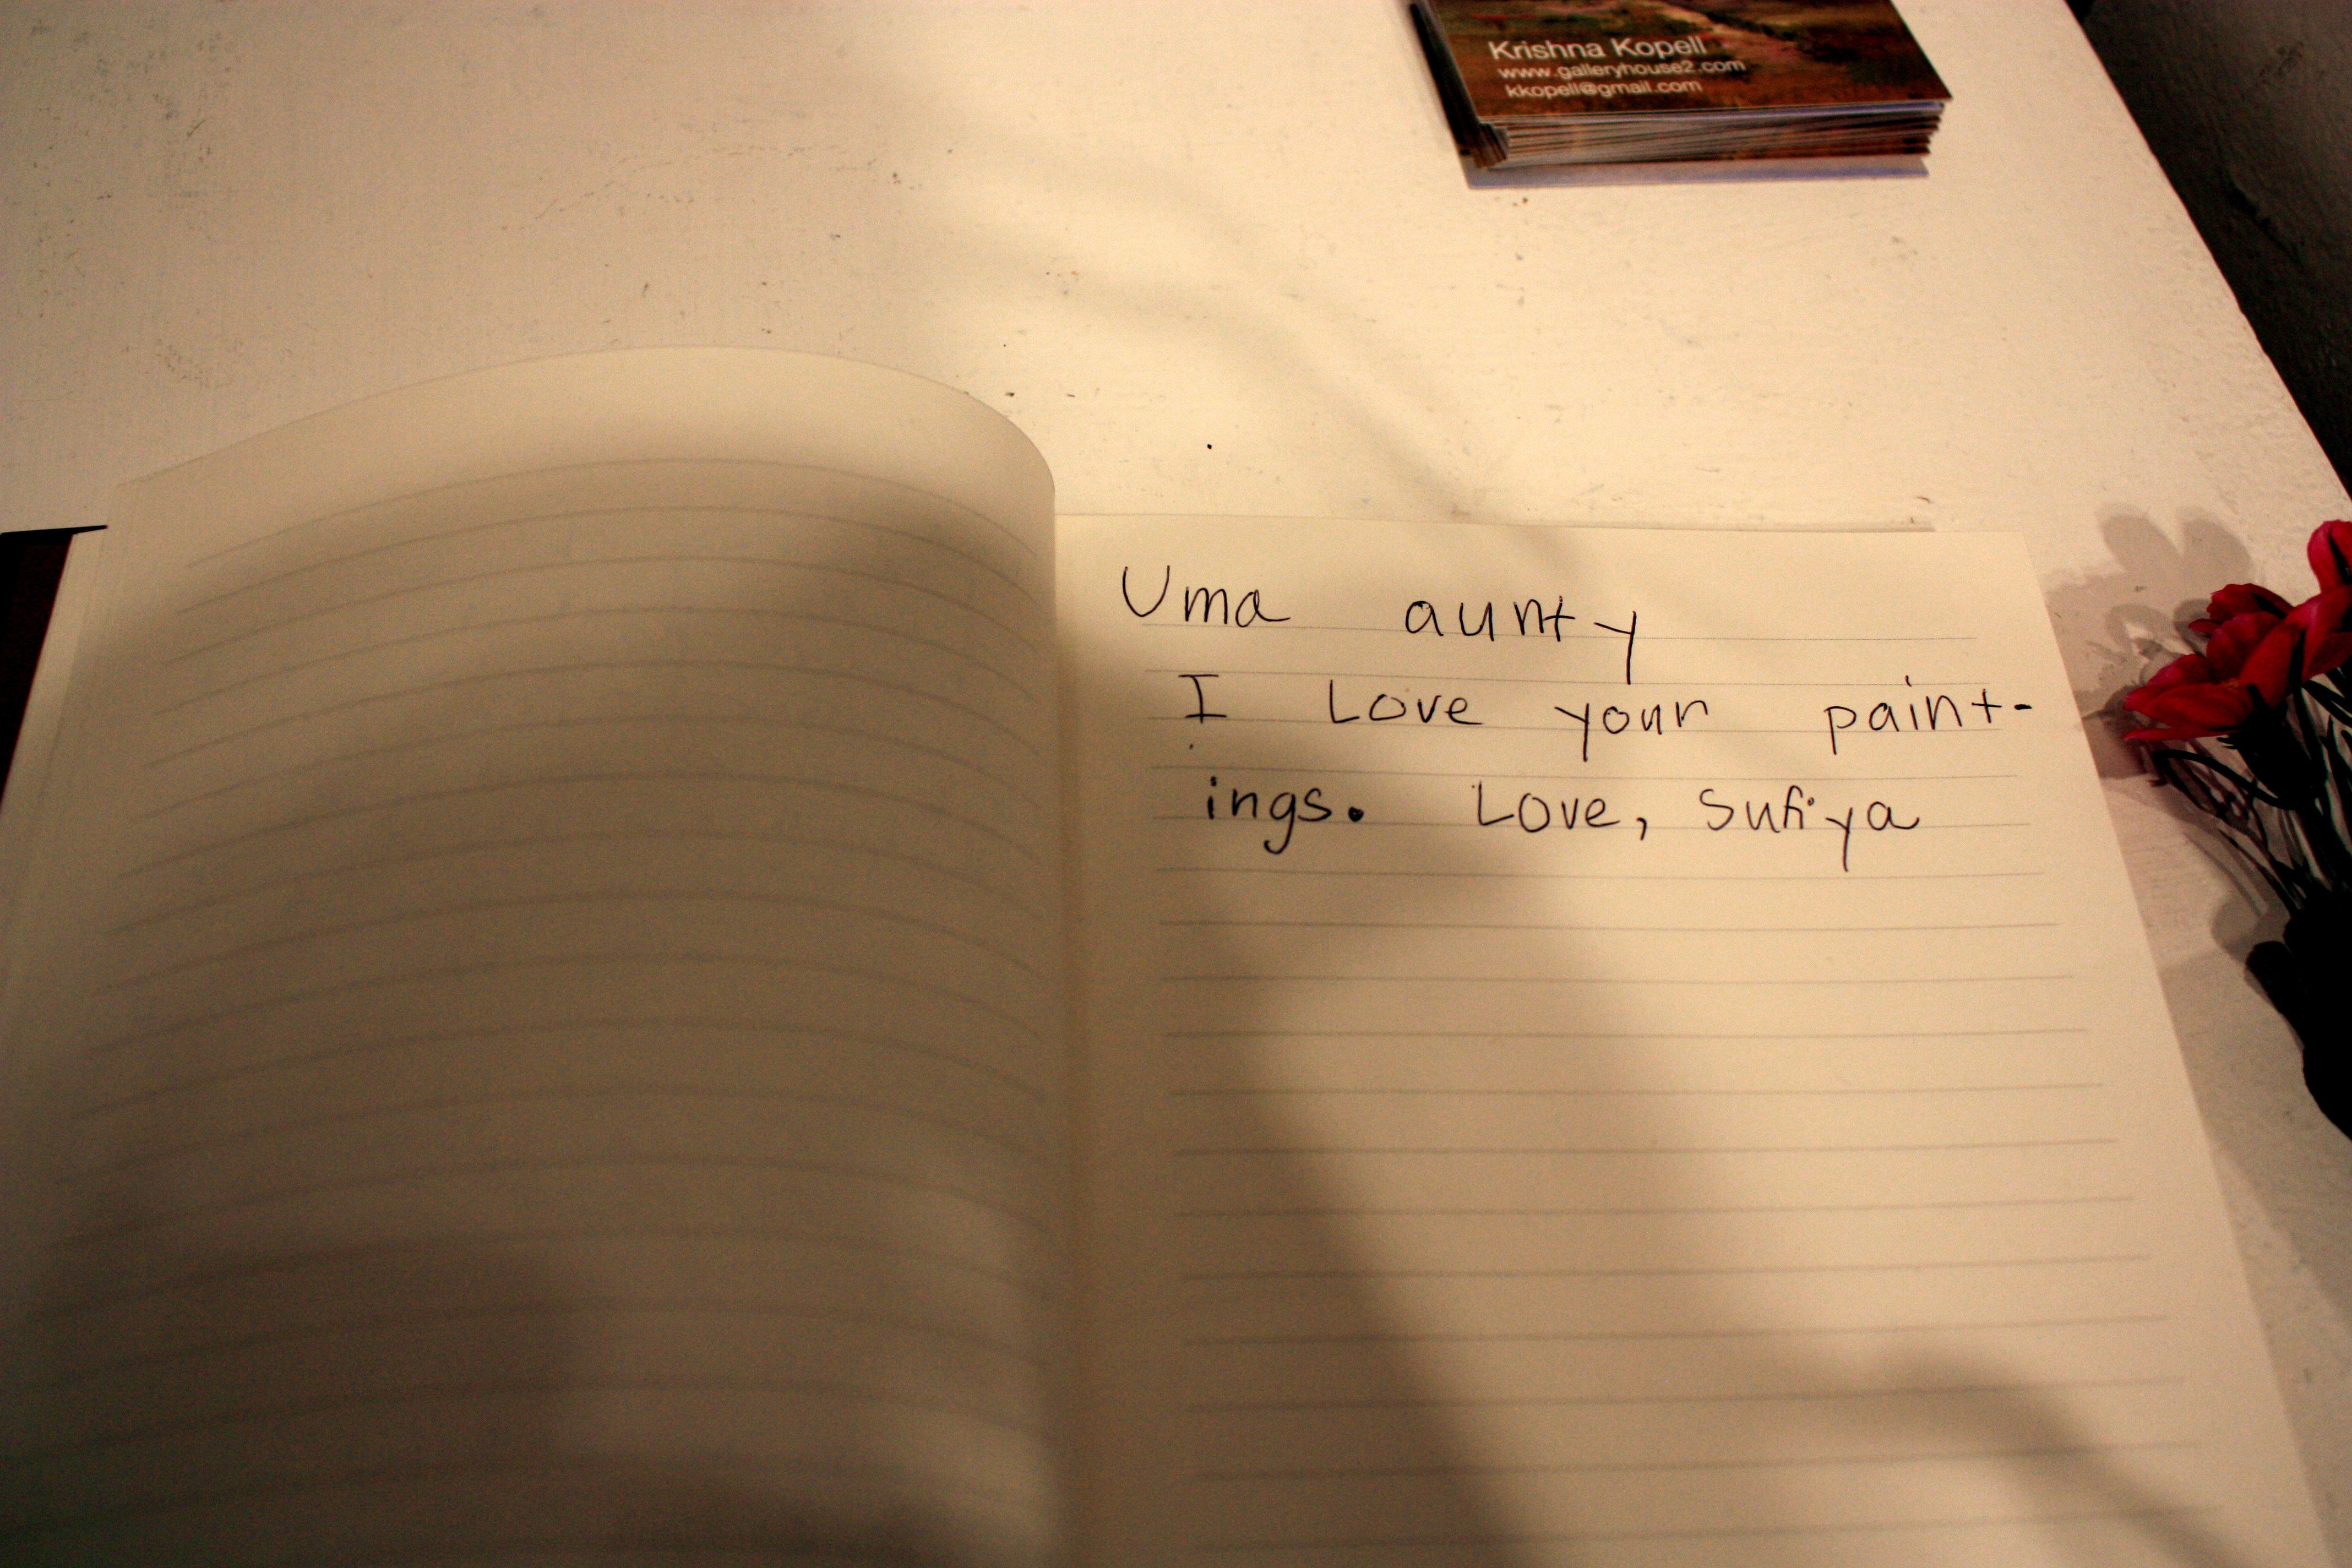 Krishna Kopell
www.galleryhouse2.com
kkopell@gmail.com
Uma aunty
I Love your paint-
ings. Love, Sufiya